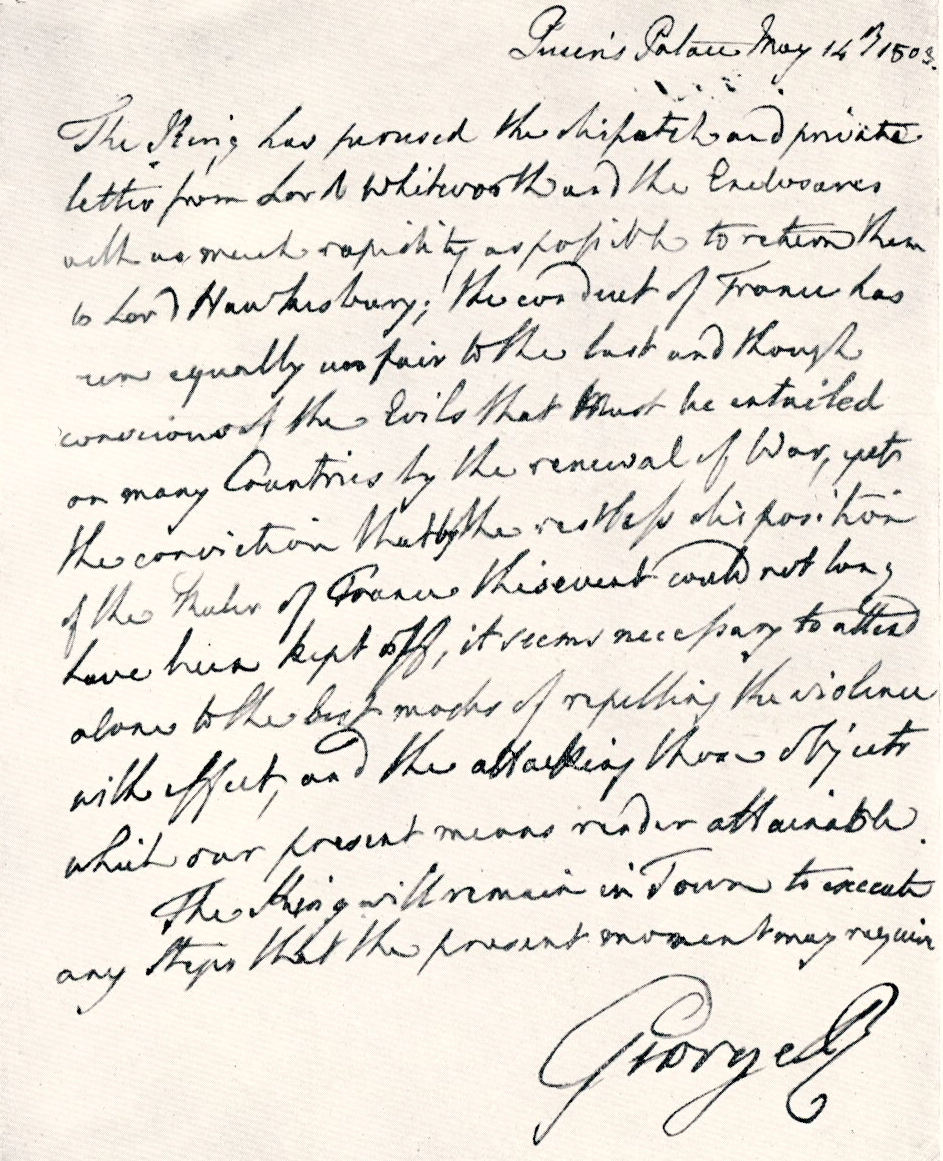 Queen's Palace May 14th 1803.
The King has perused the dispatch and private
letter from Lord Whitworth and the Enclosures
with as much rapidity as possible to return them
to Lord Hawkesbury; the conduct of France has
een equally unfair to the last and though
conscious of the Evils that must be entailed
on many Countries by the renewal of War, yet
the conviction that by the restless disposition
of the Ruler of France this event could not long
have been kept off, it seems necessary to attend
alone to the best modes of repelling the violence
with effect, and the attacking those objects
which our present means render attainable.
The King will remain in Town to execute
any steps that the present moment may require
George R